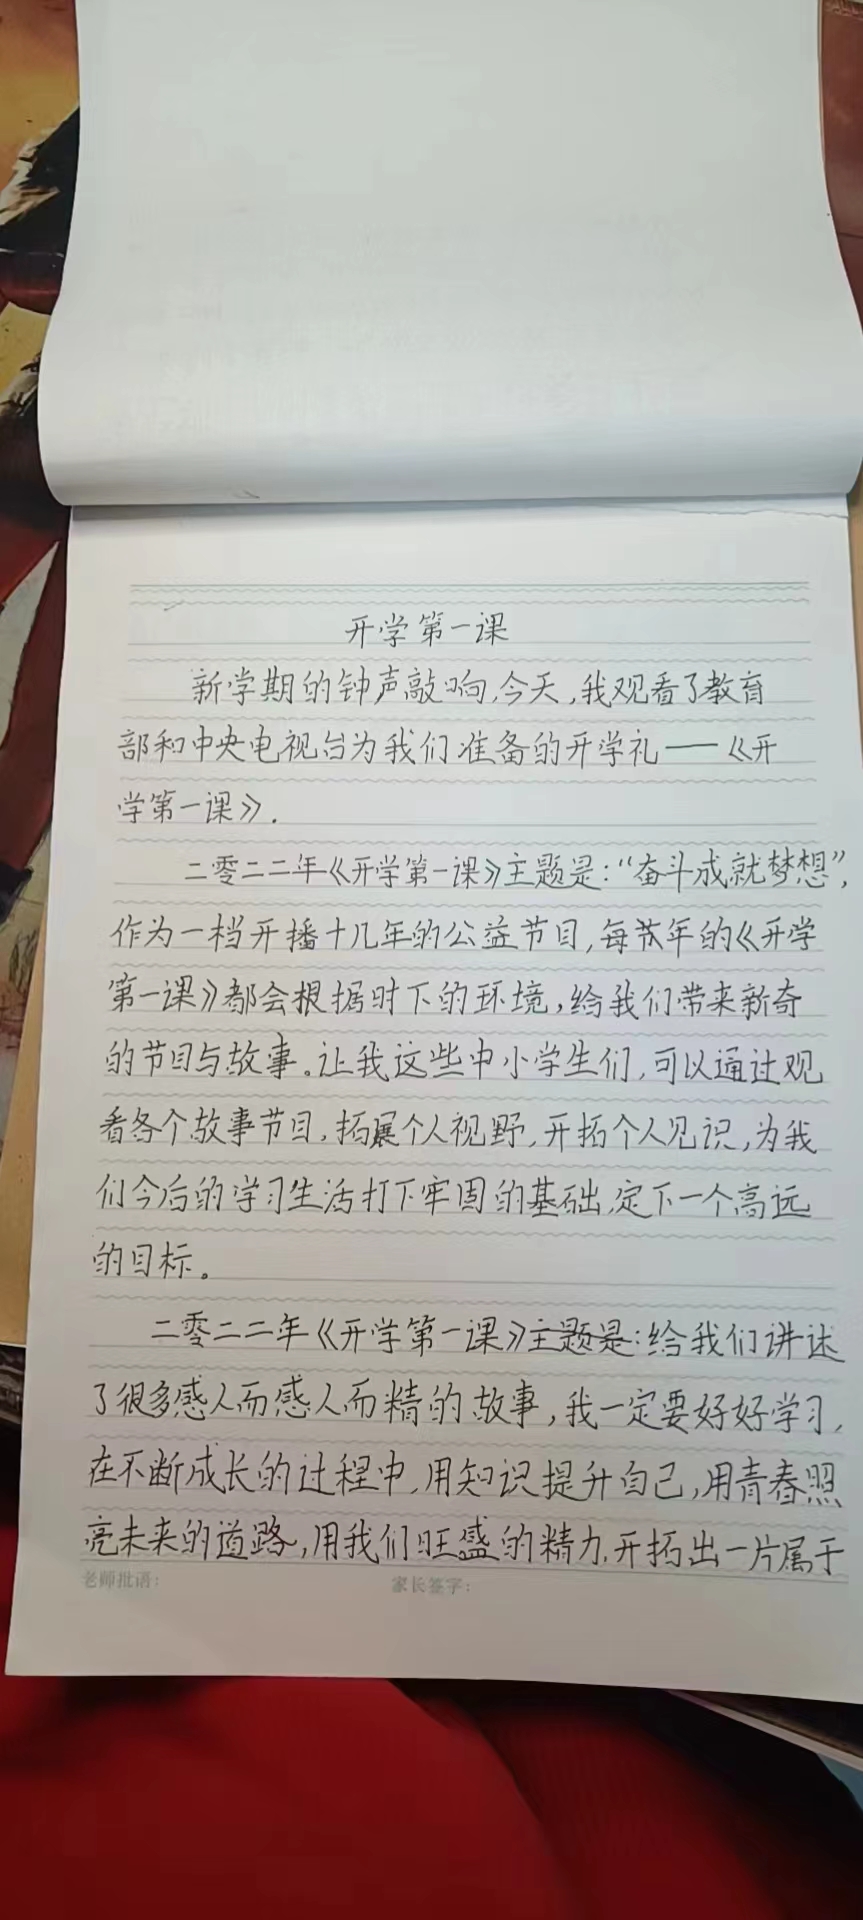 开学第一课
新学期的钟声敲响,今天,我观看了教育
部和中央电视台为我们准备的开学礼——《开
学第一课》.
二零二二年《开学第一课》主题是:“奋斗成就梦想”,
作为一档开播十几年的公益节目,每年的《开学
第一课》都会根据时下的环境,给我们带来新奇
的节目与故事。让我这些中小学生们,可以通过观
看各个故事节目,拓展个人视野,开拓个人见识,为我
们今后的学习生活打下牢固的基础,定下一个高远
的目标。
二零二二年《开学第一课》主题是:给我们讲述
了很多感人而感人而精的故事,我一定要好好学习,
在不断成长的过程中,用知识提升自己,用青春照
亮未来的道路,用我们旺盛的精力,开拓出一片属于
老师批语: 家长签字: